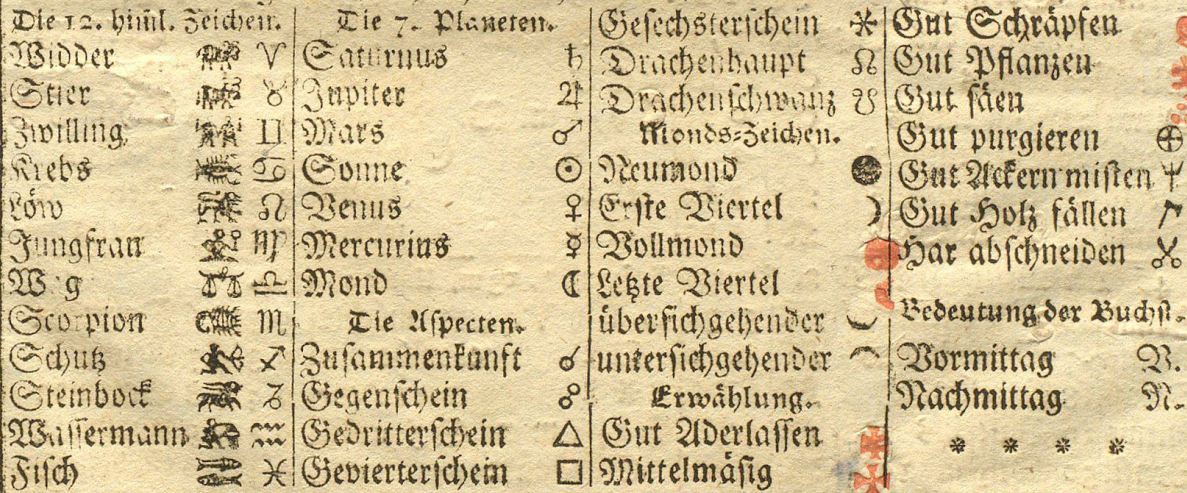 Die 12. himl. Zeichen.
Widder ♈
Stier ♉
Zwilling ♊
Krebs ♋
Löw ♌
Jungfrau ♍
W g ♎
Scorpion ♏
Schutz ♐
Steinbock ♑
Wassermann ♒
Fisch ♓
Die 7. Planeten.
Saturnus ♄
Jupiter ♃
Mars ♂
Sonne ☉
Venus ♀
Mercurius ☿
Mond ☾
Die Aspecten.
Zusammenkunft ☌
Gegenschein ☍
Gedritterschein △
Gevierterschein □
Gesechsterschein ⚹
Drachenhaupt ☊
Drachenschwanz ☋
Monds-Zeichen.
Neumond ●
Erste Viertel ☽
Vollmond
Letzte Viertel
übersichgehender
untersichgehender
Erwählung.
Gut Aderlassen
Mittelmäsig
Gut Schräpfen
Gut Pflanzen
Gut säen
Gut purgieren ⊕
Gut Ackern misten
Gut Holz fällen
Har abschneiden
Bedeutung der Buchst.
Vormittag V.
Nachmittag N.
* * * *